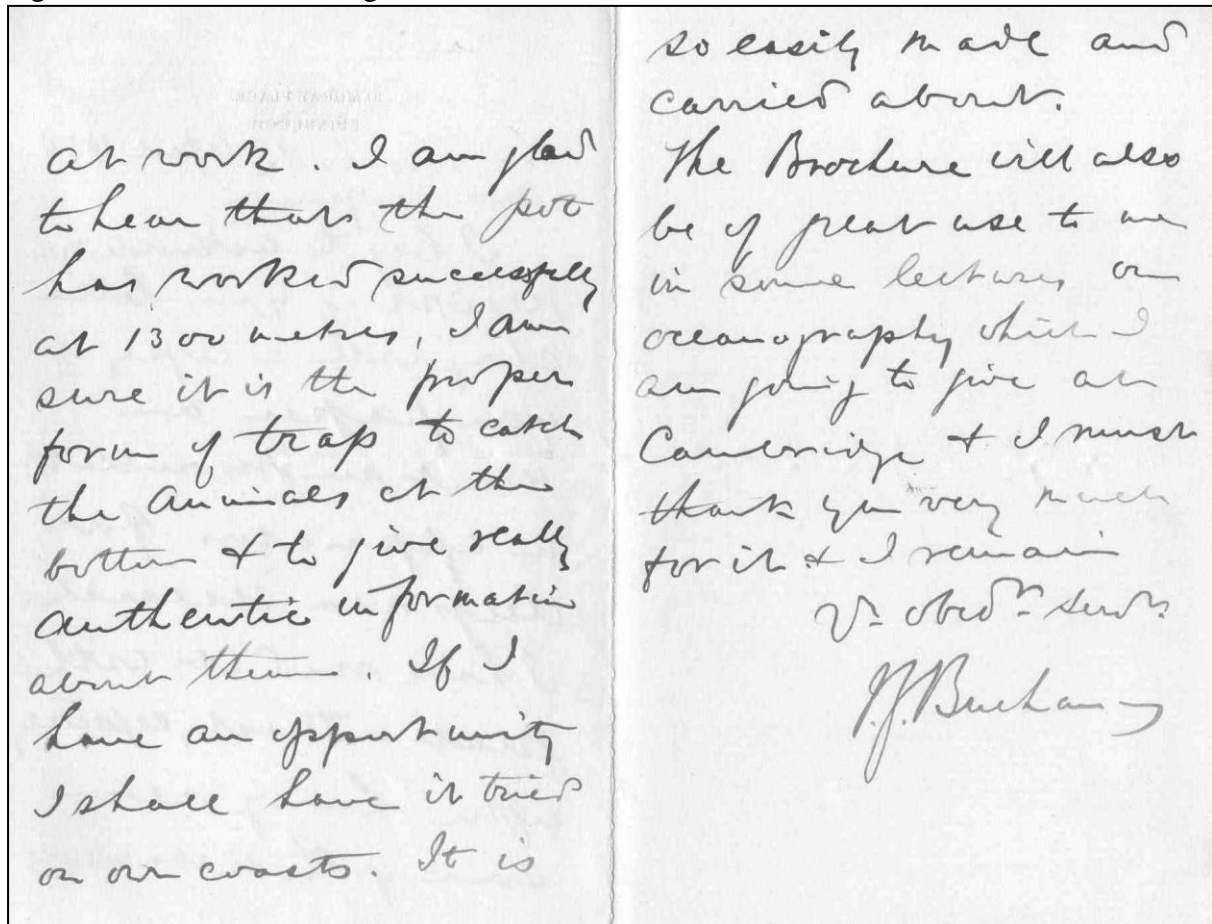 at work. I am glad
to hear that the pot
has worked successfully
at 1300 metres, I am
sure it is the proper
form of trap to catch
the animals at the
bottom & to give really
authentic information
about them. If I
have an opportunity
I shall have it tried
on our coasts. It is
so easily made and
carried about.
The Brochure will also
be of great use to me
in some lectures on
oceanography which I
am going to give at
Cambridge & I must
thank you very much
for it & I remain
Yr obedt servt
J.Y. Buchanan